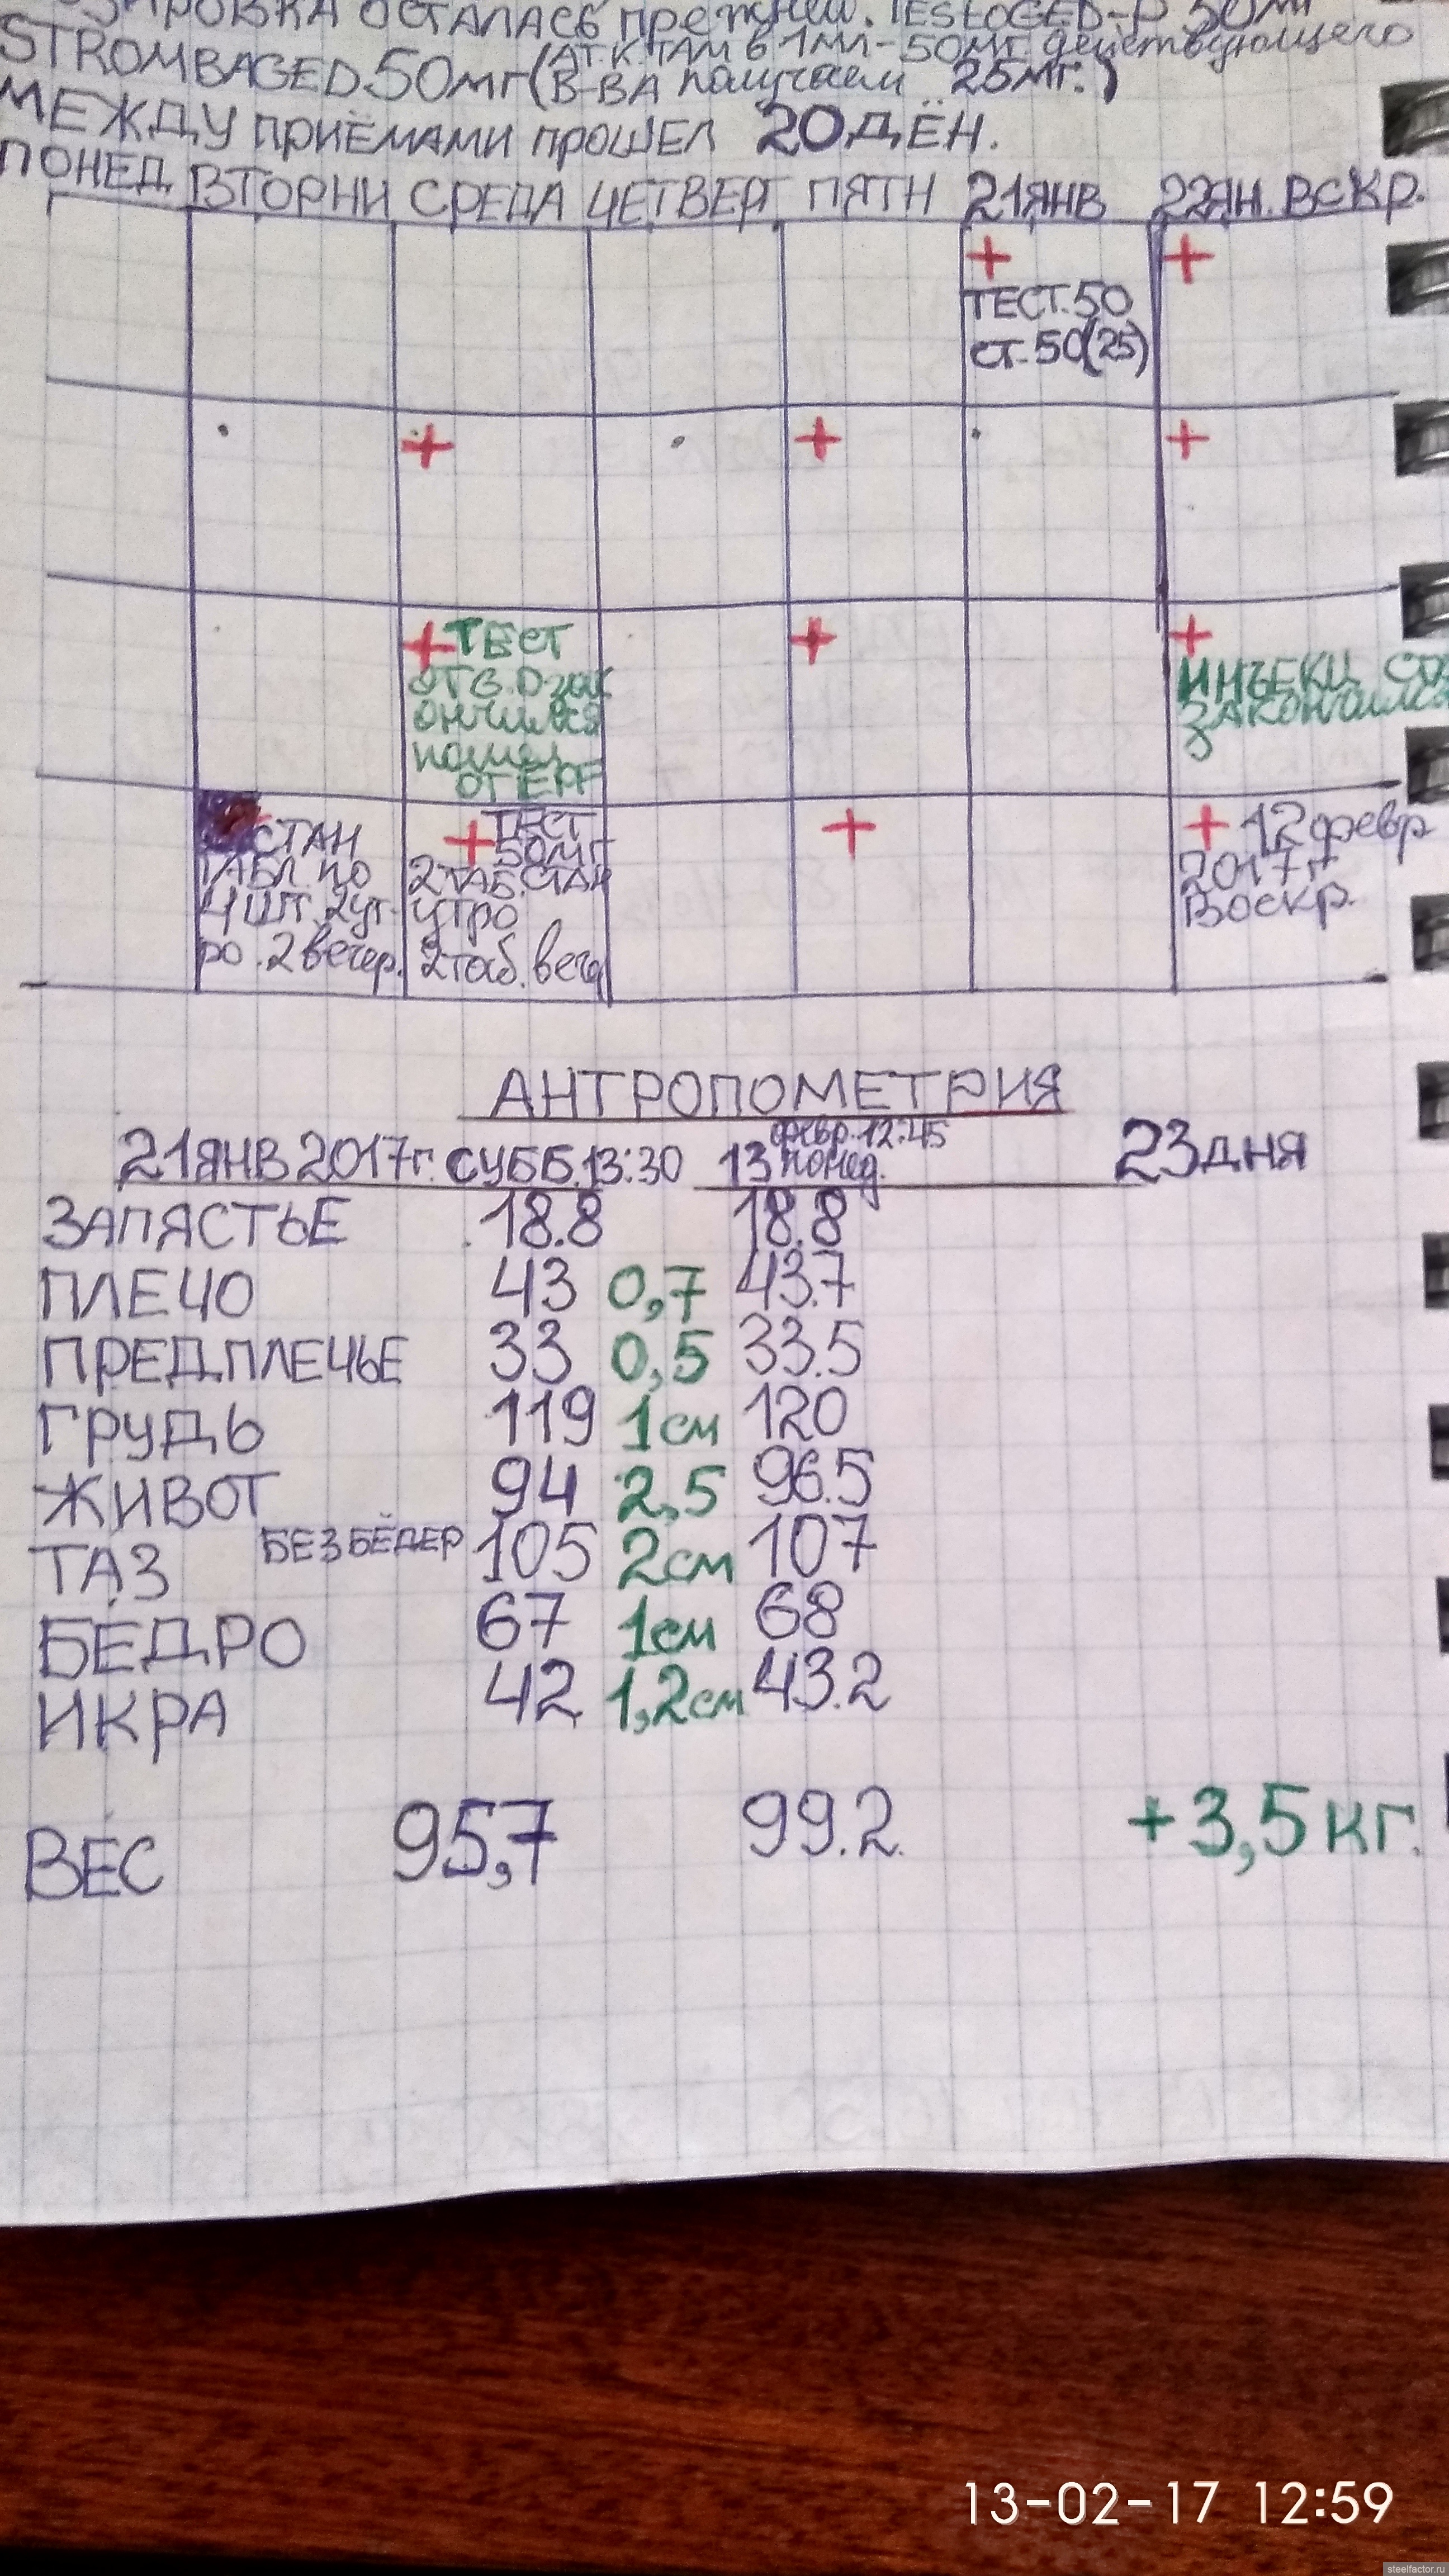 ОСТАЛАСЬ ПРЕЖНЕЙ. TESTOGED-P 50МГ
STROMBAGED.50МГ(А Т.К. ТАМ В 1МЛ-50МГ. действующего
В-ВА получаем 25МГ.)
МЕЖДУ ПРИЁМАМИ ПРОШЕЛ 20ДЁН.
ПОНЕД ВТОРНИ СРЕДА ЧЕТВЕРГ ПЯТН 21ЯНВ 22ЯН.ВСКР.
+ +
ТЕСТ.50
СТ-50(25)
+ + +
+ТЕСТ + +
ОТ G.D-зак
ончился
пошел
ОТ EPF
ИНЪЕКЦ СТ
ЗАКОНЧИЛСЯ
СТАН
ТАБЛ. ПО
4 ШТ. 2 ут-
ро. 2 вечер.
+ ТЕСТ
50МГ
2ТАБ.СТАН
УТРО
2таб.веч
+
+ 12февр
2017г
Воскр.
АНТРОПОМЕТРИЯ
21ЯНВ 2017г. СУББ.13:30 13 февр.12:45 понед. 23ДНЯ
ЗАПЯСТЬЕ 18.8 18.8
ПЛЕЧО 43 0,7 43.7
ПРЕДПЛЕЧЬЕ 33 0,5 33.5
ГРУДЬ 119 1см 120
ЖИВОТ 94 2,5 96.5
ТАЗ БЕЗ БЁДЕР 105 2см 107
БЁДРО 67 1см 68
ИКРА 42 1,2см 43.2
ВЕС 95,7 99.2 +3,5кг.
13-02-17 12:59
steelfactor.ru